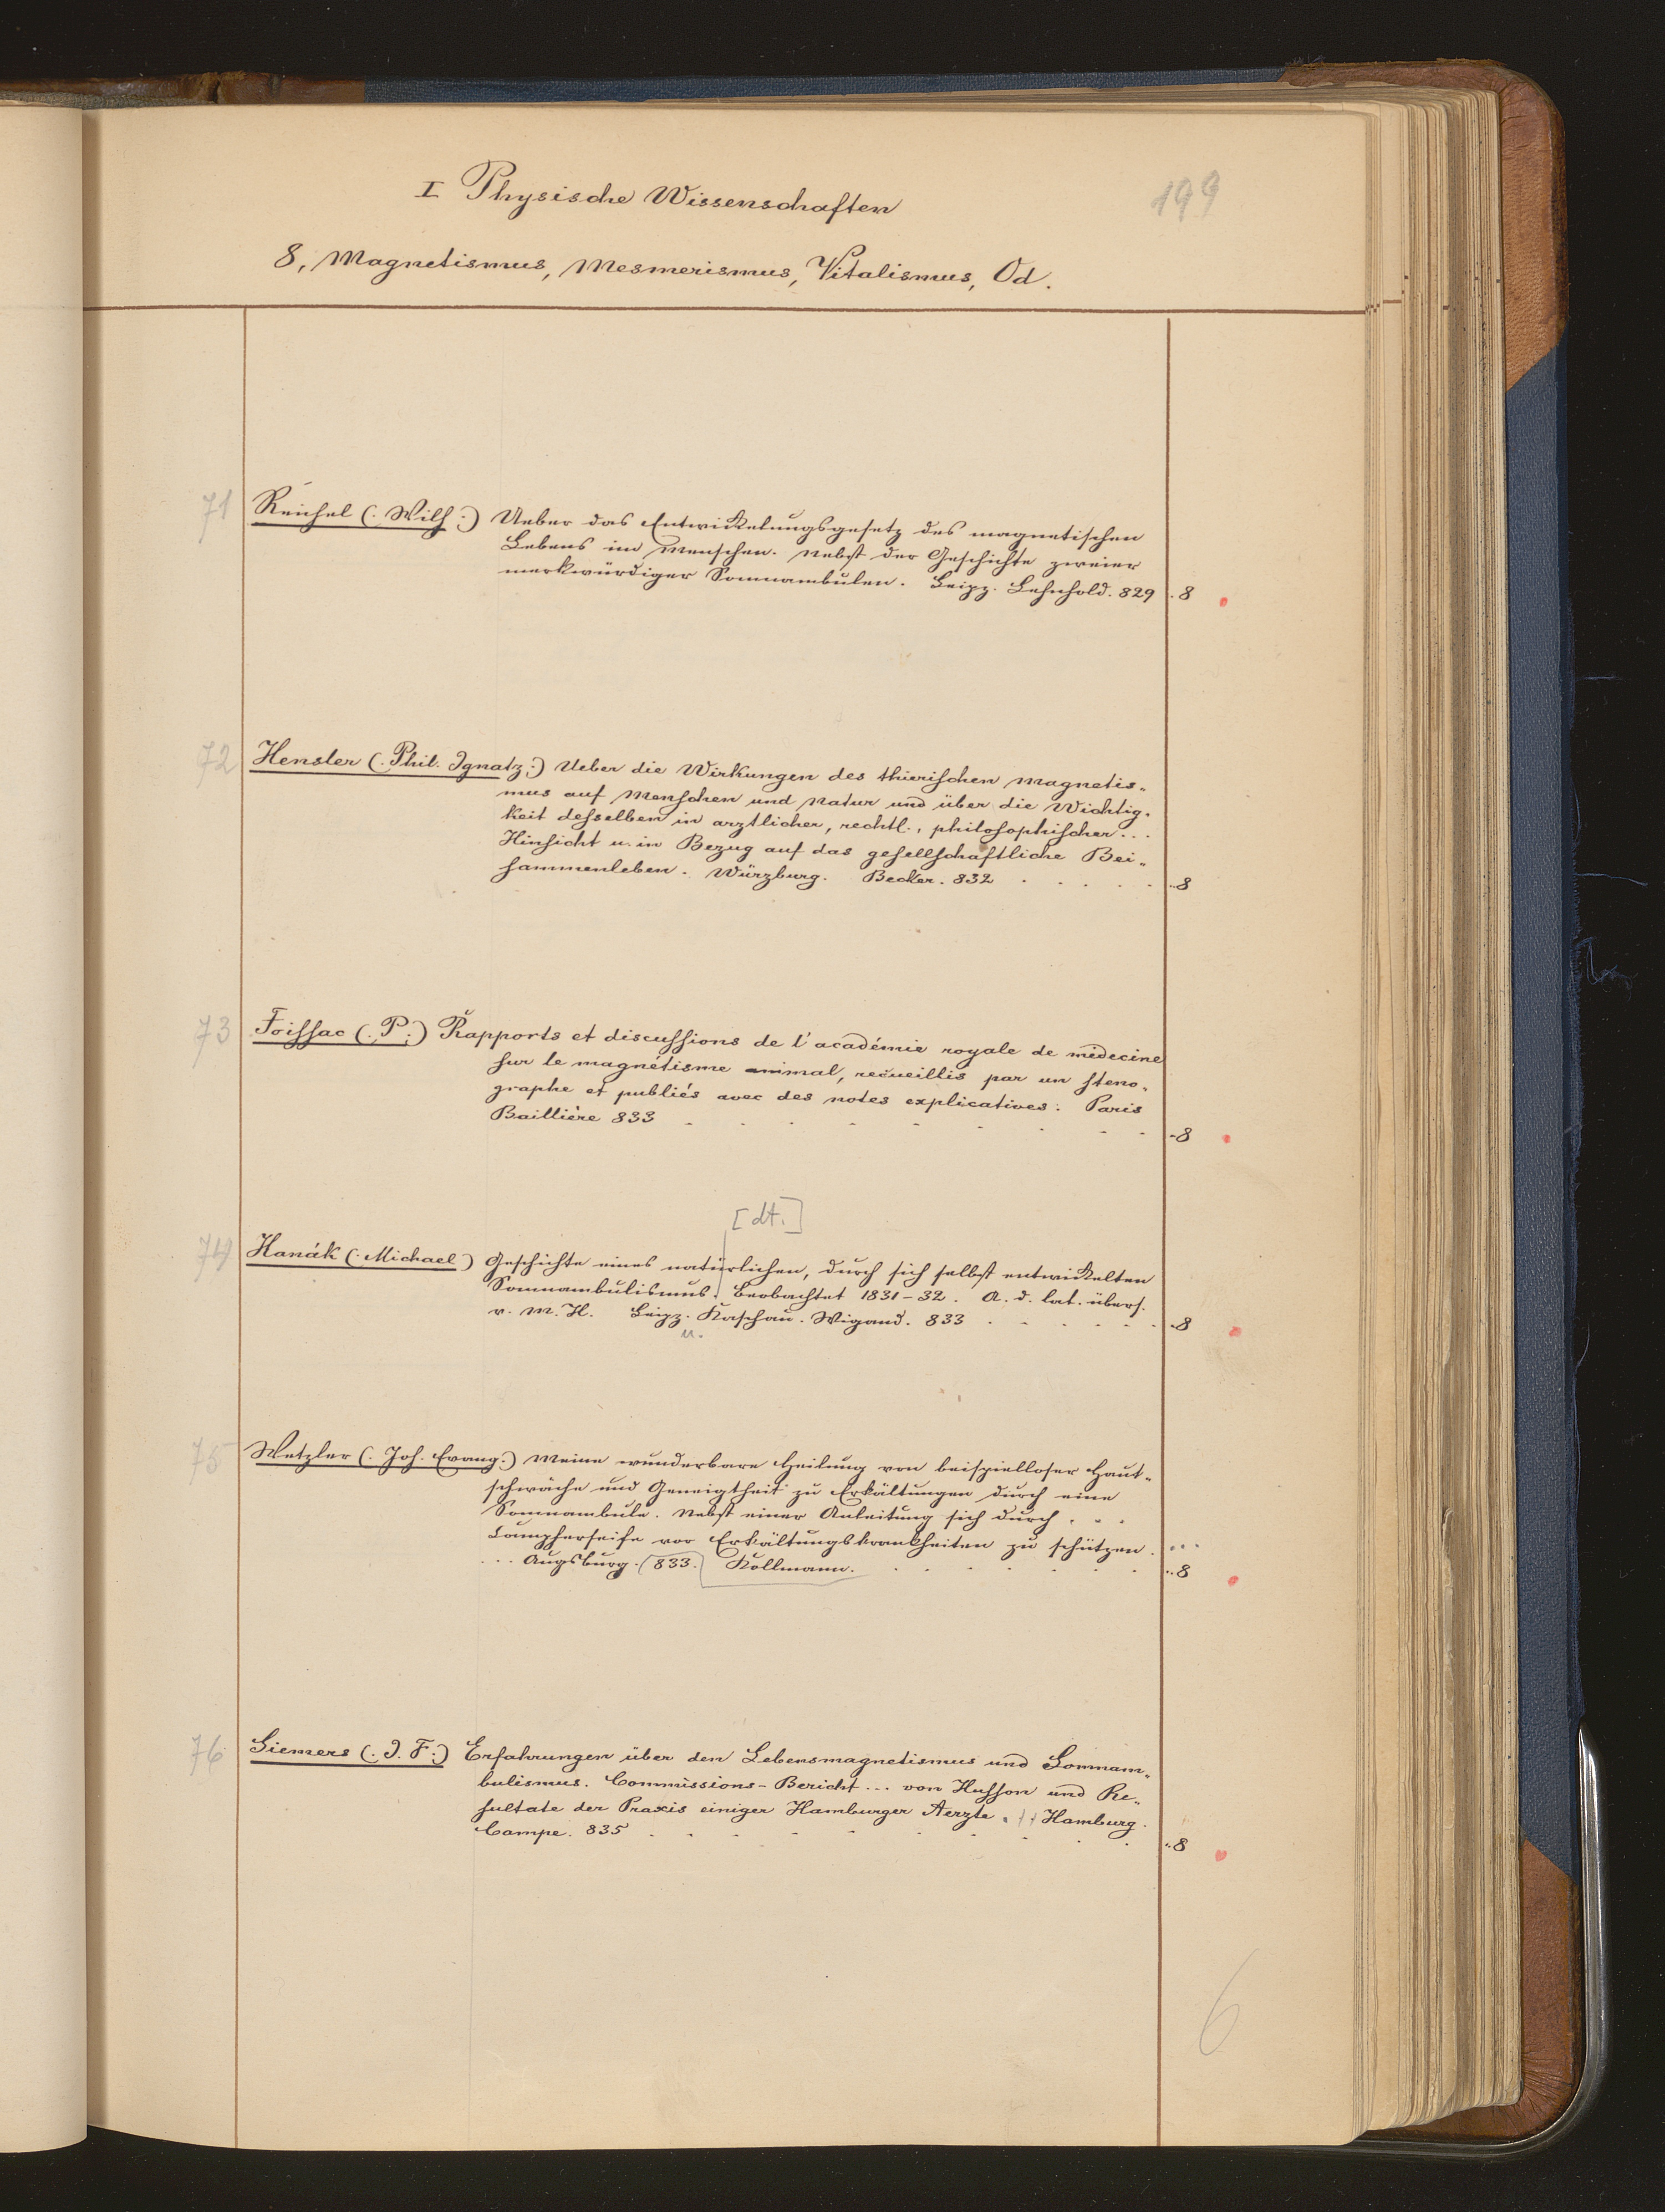 I Physische Wissenschaften
199
8, Magnetismus, Mesmerismus, Vitalismus, Od.
71 Reichel (: Wilh :) Ueber das Entwickelungsgesetz des magnetischen
Lebens im Menschen. Nebst der Geschichte zweier
merkwürdiger Somnambulen. Leipz. Lehnhold. 829 . 8
72 Hensler (: Phil. Ignatz :) Ueber die Wirkungen des thierischen Magnetis-
mus auf Menschen und Natur und über die Wichtig-
keit desselben in arztlicher, rechtl., philosophischer...
Hinsicht u. in Bezug auf das gesellschaftliche Bei-
sammenleben. Würzburg. Becker. 832 . . . . . 8
73 Foissac (: P :) Rapports et discussions de l'académie royale de médecine
sur le magnétisme animal, recueillis par un steno-
graphe et publiés avec des notes explicatives: Paris
Baillière 833 - - - - - - - - - 8
[dt.]
74 Hanák (: Michael ) Geschichte eines natürlichen, durch sich selbst entwickelten
Somnambulismus. Beobachtet 1831-32. A. d. lat. übers.
v. M. H. Leipz. Kaschau. Wigand. 833 . . . . . . 8
u.
75 Wetzler (: Joh. Evang :) Meine wunderbare Heilung von beispielloser Haut-
schwäche und Geneigtheit zu Erkältungen durch eine
Somnambule. Nebst einer Anleitung sich durch . . .
Campherseife vor Erkältungskrankheiten zu schützen. ...
... Augsburg. 833. Kollmann. . . . . . . . 8
76 Siemers (: J. F :) Erfahrungen über den Lebensmagnetismus und Somnam-
bulismus. Commissions-Bericht ... von Husson und Re-
sultate der Praxis einiger Hamburger Aerzte . Hamburg.
Campe. 835 . . . . . . . . . 8
6